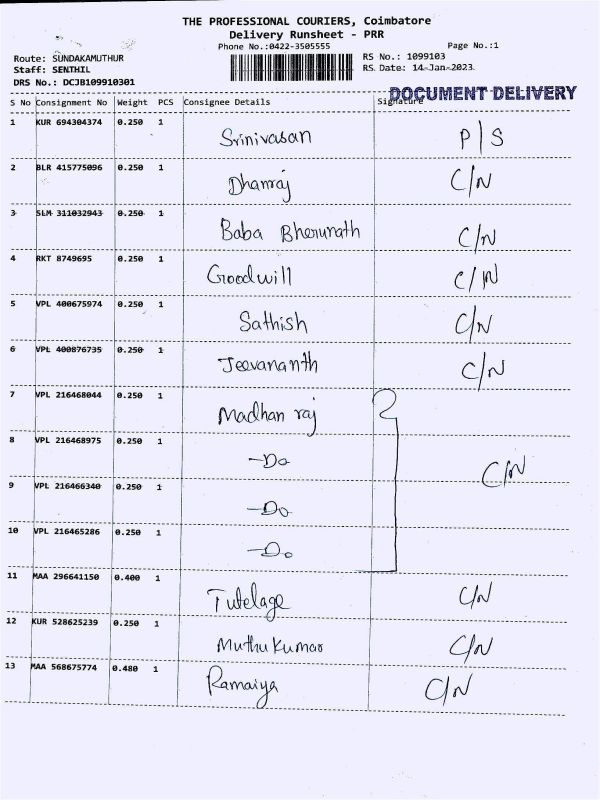 THE PROFESSIONAL COURIERS, Coimbatore
Delivery Runsheet - PRR
Phone No.:0422-3505555
Page No.:1
Route: SUNDAKAMUTHUR
RS No.: 1099103
Staff: SENTHIL
RS Date: 14-Jan-2023
DRS No.: DCJB109910301
DOCUMENT DELIVERY
S No Consignment No Weight PCS Consignee Details Signature
1 KUR 694304374 0.250 1 Srinivasan P/S
2 BLR 415775096 0.250 1 Dhanraj C/N
3 SLM 311032943 0.250 1 Baba Bherunath C/N
4 RKT 8749695 0.250 1 Goodwill C/N
5 VPL 400675974 0.250 1 Sathish C/N
6 VPL 400876735 0.250 1 Jeevananth C/N
7 VPL 216468044 0.250 1 Madhan raj
8 VPL 216468975 0.250 1 -Do
C/N
9 VPL 216466340 0.250 1 -Do
10 VPL 216465286 0.250 1 -Do
11 MAA 296641150 0.400 1 Tutelage C/N
12 KUR 528625239 0.250 1 Muthu Kumar C/N
13 MAA 568675774 0.480 1 Ramaiya C/N